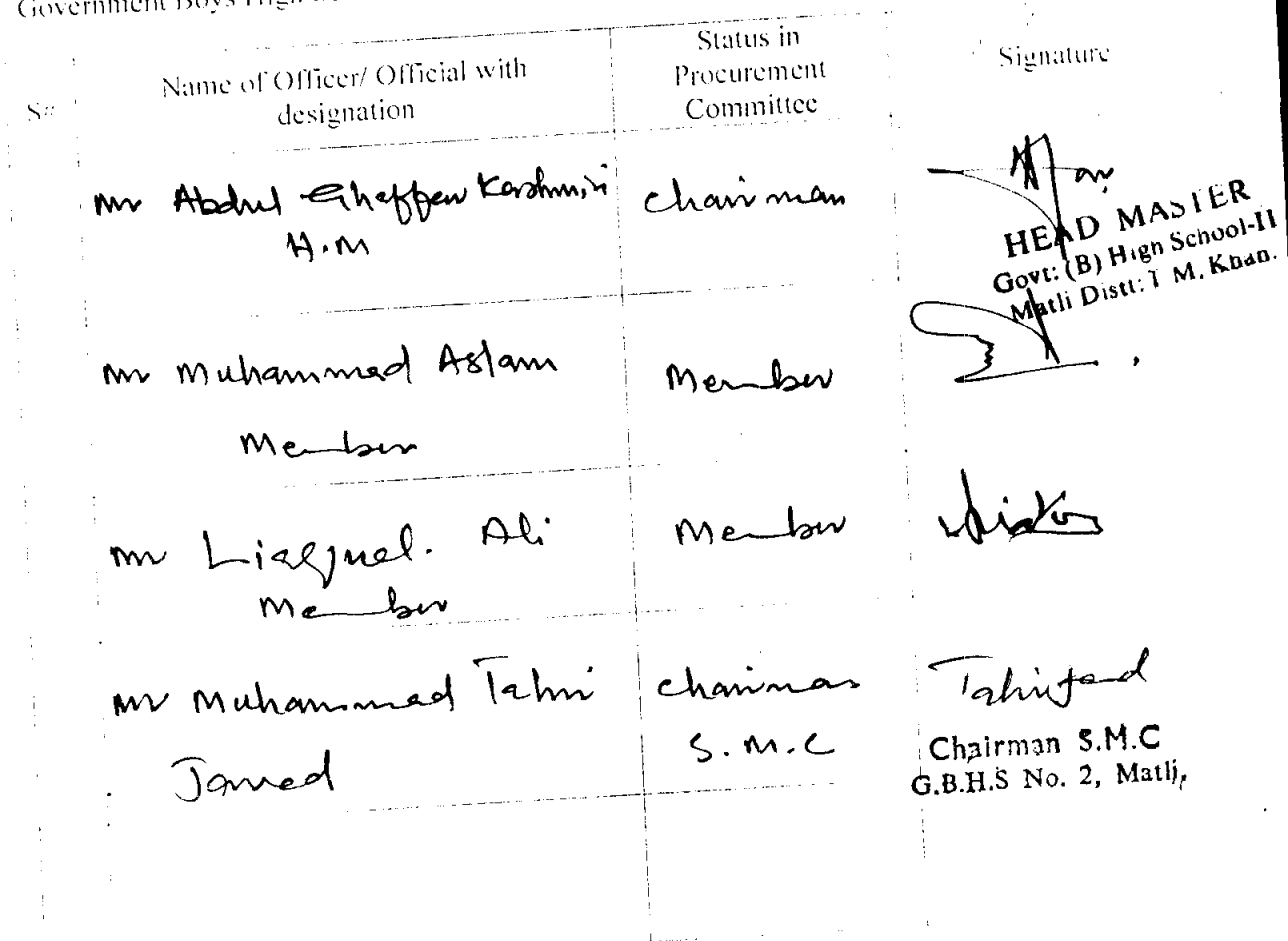 Government Boys High
S#
Name of Officer/ Official with
designation
Status in
Procurement
Committee
Signature
Mr Abdul Ghaffar Kashmiri
H.M
Chairman
HEAD MASTER
Govt: (B) High School-II
Matli Distt: T M. Khan.
Mr Muhammad Aslam
Member
Member
Mr Liaqual. Ali
Member
Member
Mr Muhammad Tahir
Javed
Chairman
S.M.C
Chairman S.M.C
G.B.H.S No. 2, Matli,